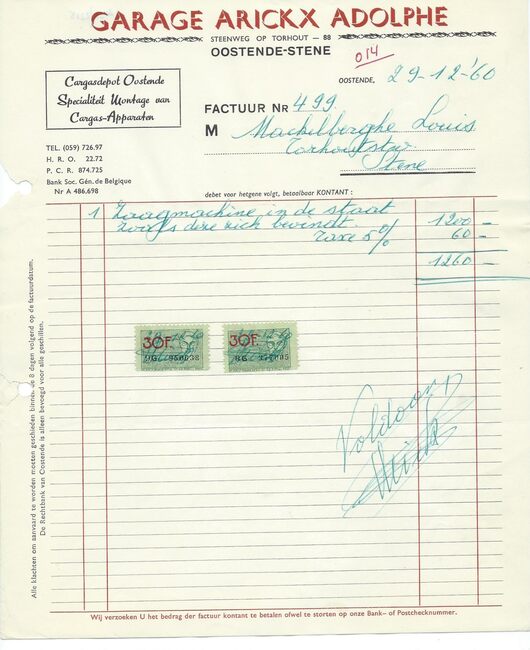 GARAGE ARICKX ADOLPHE
STEENWEG OP TORHOUT — 88
OOSTENDE-STENE
014
Cargasdepot Oostende
Specialiteit Montage van
Cargas-Apparaten
OOSTENDE, 29-12-'60
FACTUUR Nr 499
M Mackelberghe Louis
Torhoutstw
Stene
TEL. (059) 726.97
H. R. O. 22.72
P. C. R. 874.725
Bank Soc. Gén. de Belgique
Nr A 486.698
debet voor hetgene volgt, betaalbaar KONTANT :
1 Zaagmachine in de staat 1200 —
zoals deze zich bevindt.
Taxe 5% 60 —
1260 —
30F.
30F.
Voldaan
Alle klachten om aanvaard te worden moeten geschieden binnen de 8 dagen volgend op de factuurdatum.
De Rechtbank van Oostende is alleen bevoegd voor alle geschillen.
Wij verzoeken U het bedrag der factuur kontant te betalen ofwel te storten op onze Bank- of Postchecknummer.